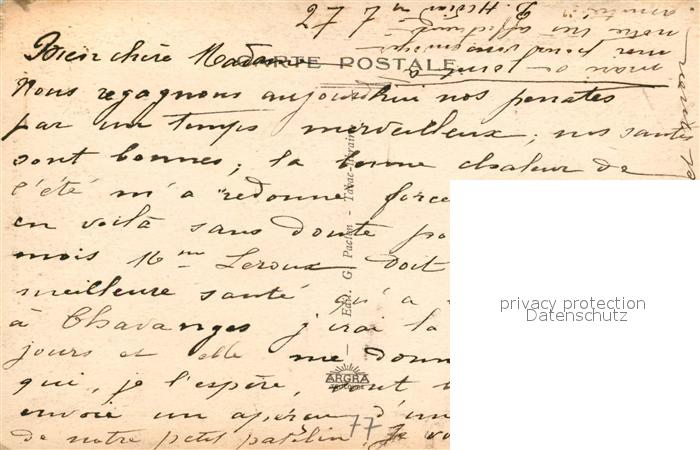 Bien chère Madame
CARTE POSTALE
Nous regagnons aujourd'hui nos penates
par un temps merveilleux, nos santés
sont bonnes; la bonne chaleur de
l'été m'a redonné force
en voilà sans doute po
mois Mme Leroux doit
meilleure santé qu'a
à Chavanges j'irai la
jours et elle me donn
qui, je l'espère, sont
envoie un aperçu d'un
de notre petit patelin, Je vo
27 7
notre très affectueu
Edit. G. Paclon - Tabac-Librairie
ARGRA
77
privacy protection
Datenschutz